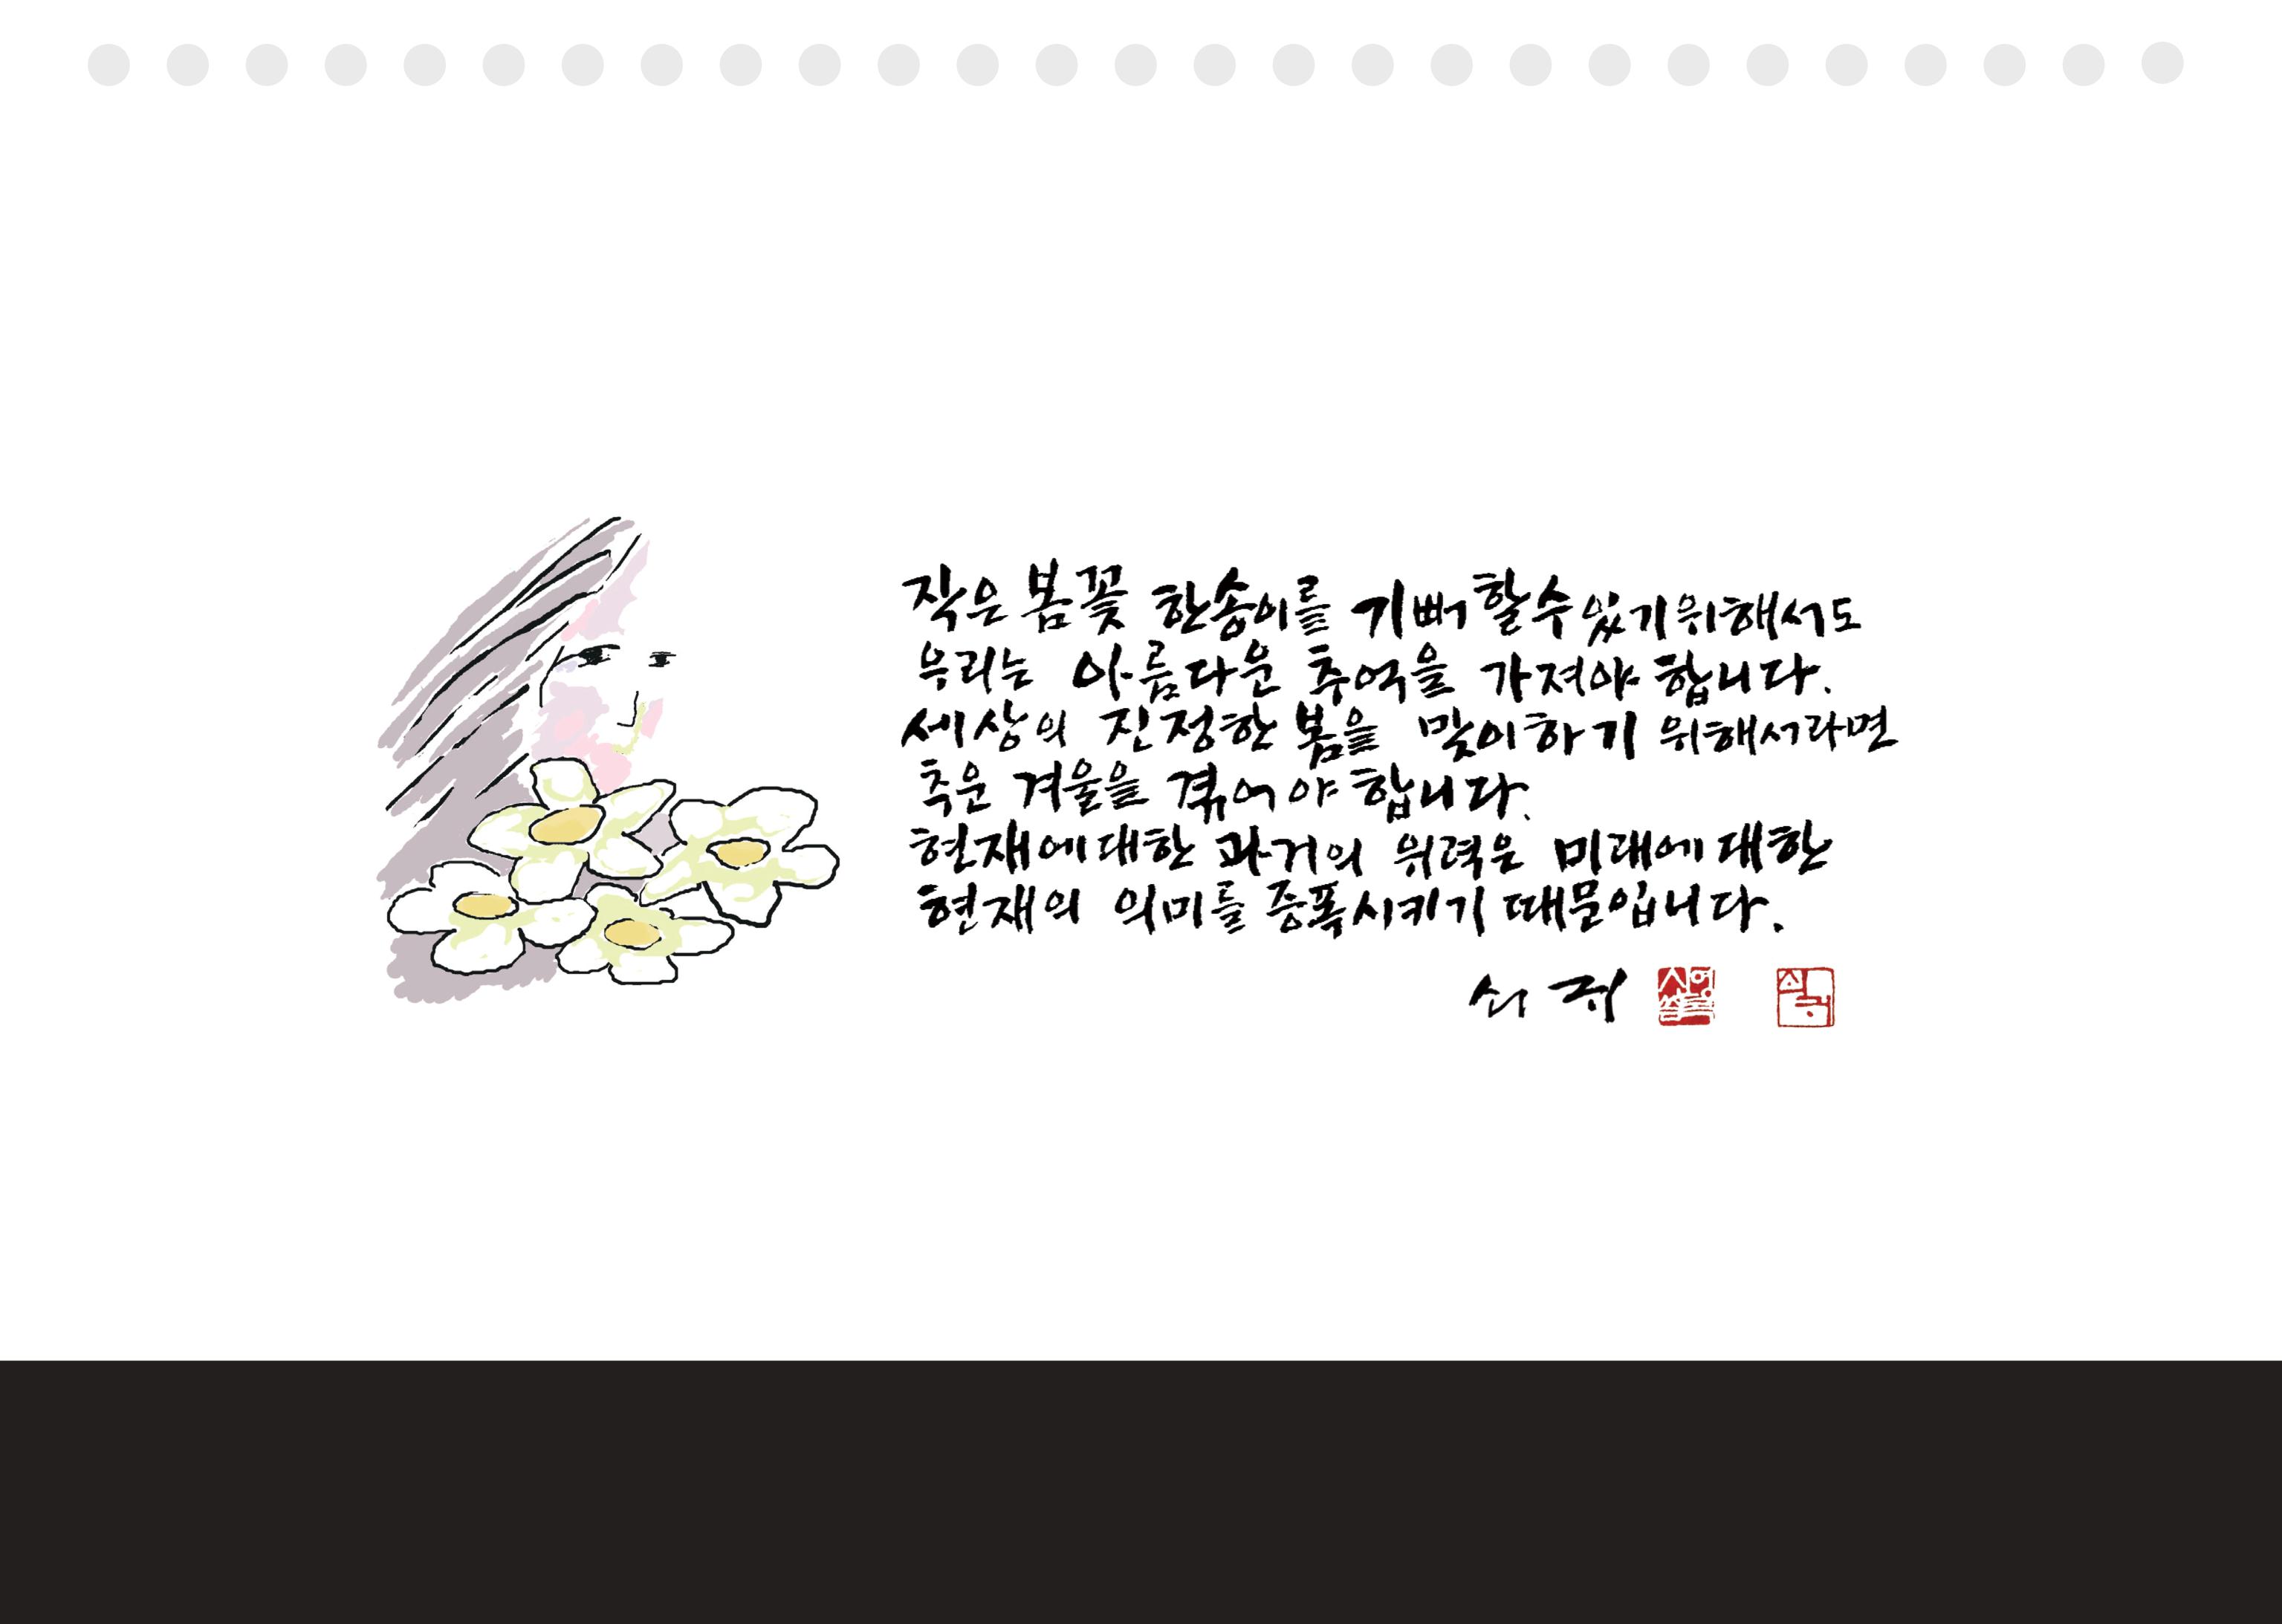 작은 봄꽃 한송이를 기뻐할수있기위해서도
우리는 아름다운 추억을 가져야 합니다.
세상의 진정한 봄을 맞이하기 위해서라면
추운 겨울을 겪어야 합니다.
현재에대한 과거의 위력은 미래에대한
현재의 의미를 증폭시키기 때문입니다.